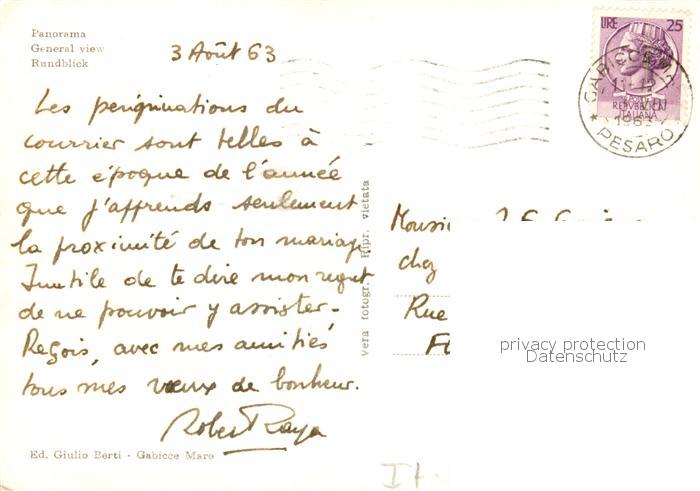 Panorama
General view
Rundblick
3 Août 63
Les périgrinations du
courrier sont telles à
cette époque de l'année
que j'apprends seulement
la proximité de ton mariage.
Inutile de te dire mon regret
de ne pouvoir y assister.
Reçois, avec mes amitiés
tous mes vœux de bonheur.
Robert
Ed. Giulio Berti - Gabicce Mare
Vera fotogr. Ripr. vietata
LIRE 25
REPVBBLICA
ITALIANA
GABICCE
1963
* PESARO
chez
Rue
privacy protection
Datenschutz
It.